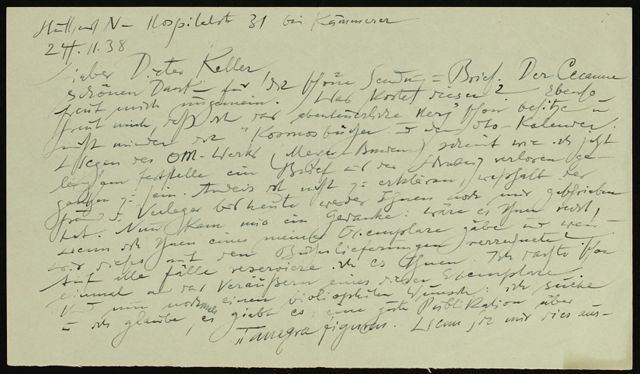 Stuttgart N – Hospitalstr 31 bei Kämmerer
24. 11. 38
Lieber Dieter Keller
schönen Dank für die schöne Sendung = Brief. Der Cezanne
freut mich ungemein. Was kostet dieser? Ebenso
freut mich, daß ich das abenteuerliche Herz schon besitze u
nicht minder die "Kosmosbücher u der Foto-Kalender.
Wegen des OM-Werks (Meyer-Benden) scheint wie ich jetzt
fesstelle ein Brief an den verloren ge-
gangen zu sein. Anders ist nicht zu erklären, weshalb der
u. Verleger bis heute weder Ihnen noch mir geschrieben
hat. Nun kam mir ein Gedanke: wäre es Ihnen recht,
wenn ich Ihnen eines meiner Exemplare gäbe u wir
dieses mit den Bücherlieferungen verrechneten?
Auf alle Fälle reserviere ich es Ihnen. Ich dachte schon
einmal an das Veräußern eines dieser Exemplare.
Und nun nochmals einen bibliophilen Wunsch: ich suche
u ich glaube, es giebt es: eine gute Publikation über
"Tanagrafiguren. Wenn Sie mir dies aus-